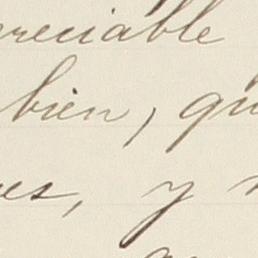 preciable
bien, qu
es, y